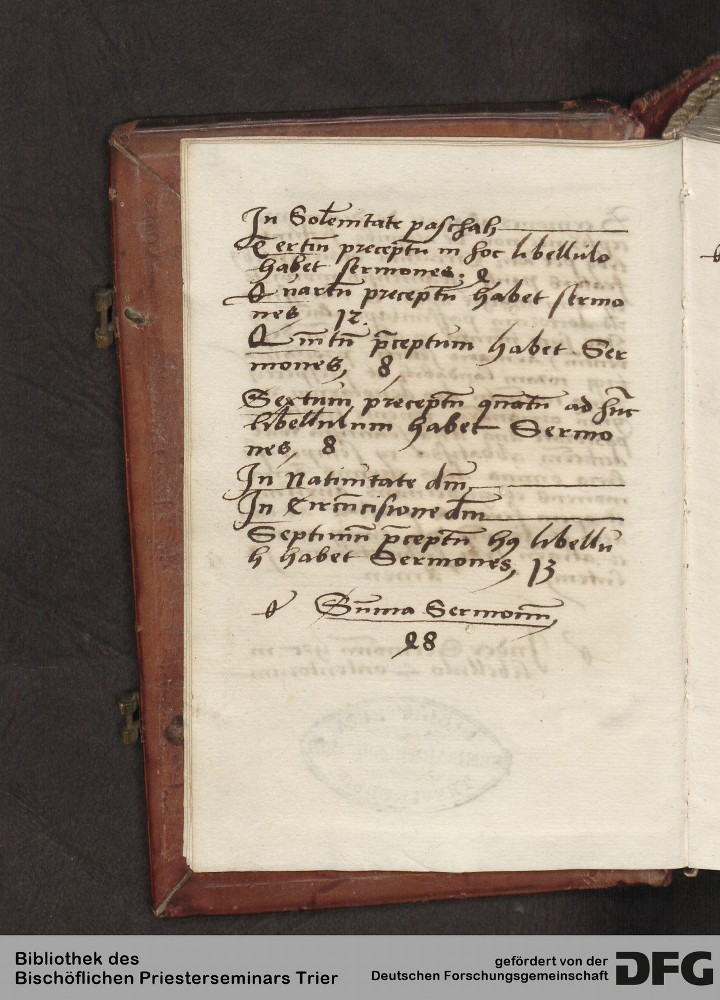 In Solēnitate paschah
Tertiū preceptū in hoc libellulo
habet sermones. 4
Quartū preceptū habet sermo
nes, 12.
Quintū p̄ceptum habet Ser
mones, 8,
Sextum preceptū quātū ad hūc
libellulum habet Sermo
nes, 8
In Natiuitate dm̄
In Circūcisione dm̄
Septimū p̄ceptū hꝯ libellu
li habet Sermones, 13
Sūma Sermonū,
48
Bibliothek des
Bischöflichen Priesterseminars Trier
gefördert von der
Deutschen Forschungsgemeinschaft
DFG